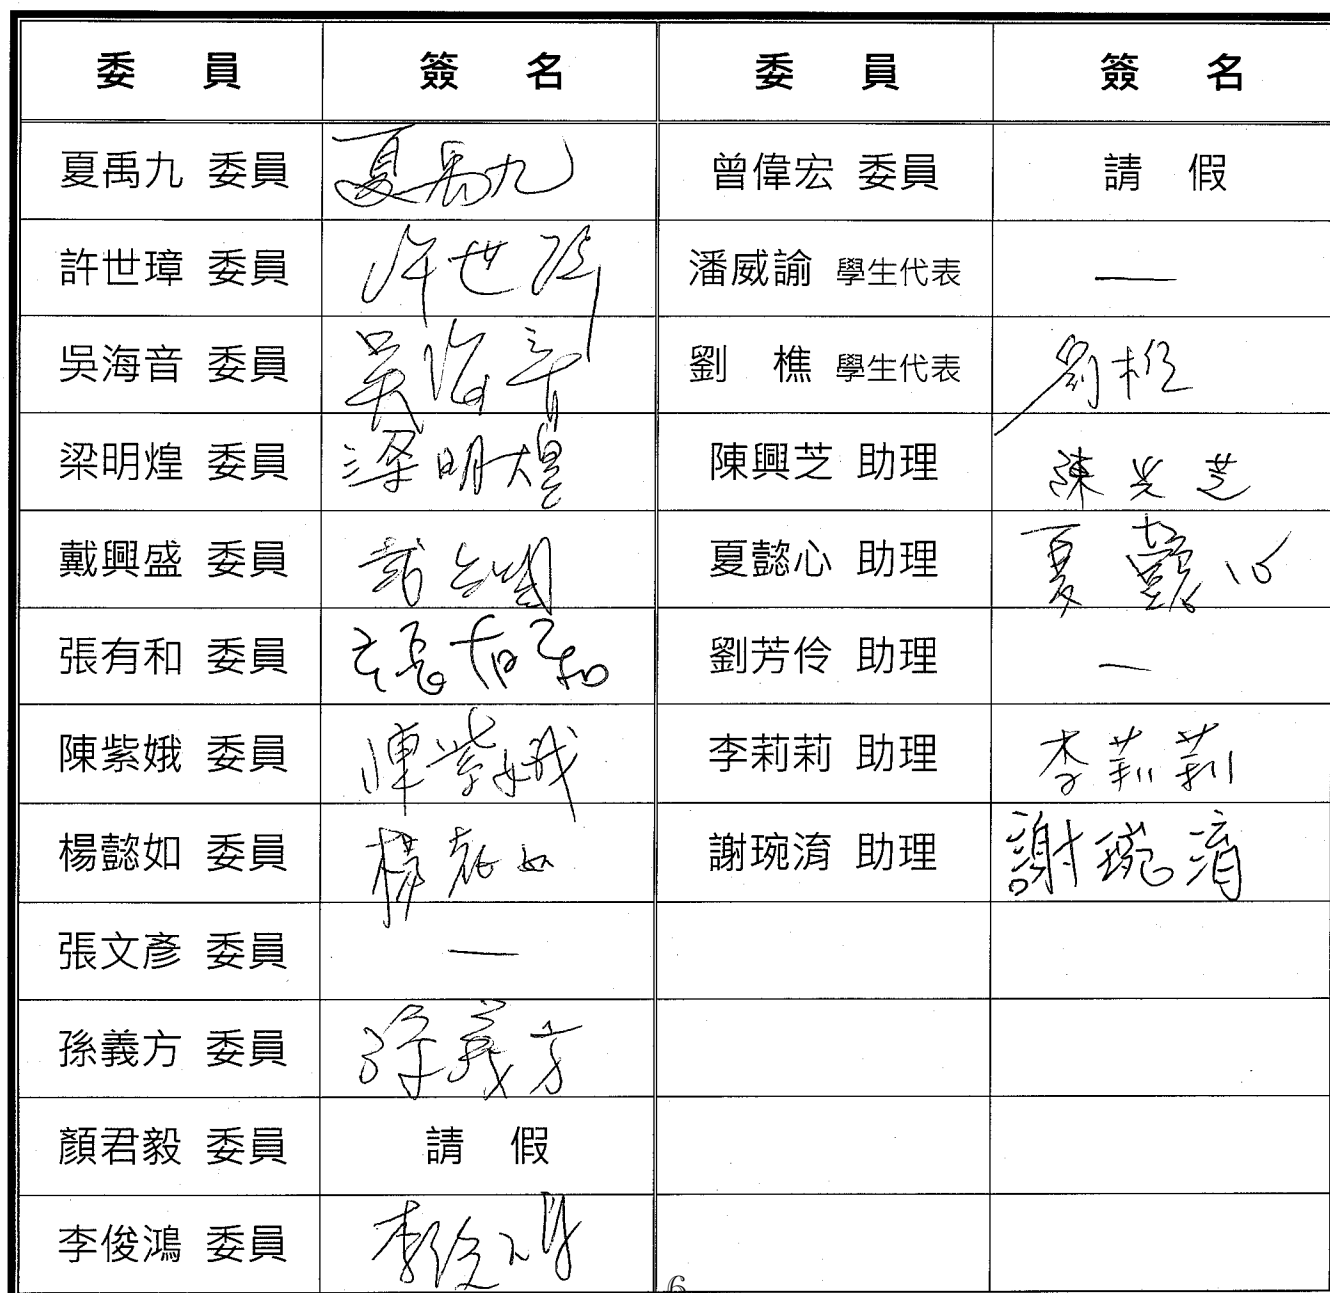 委員 簽名 委員 簽名
夏禹九 委員 夏禹九 曾偉宏 委員 請假
許世璋 委員 許世璋 潘威諭 學生代表 —
吳海音 委員 吳海音 劉樵 學生代表 劉樵
梁明煌 委員 梁明煌 陳興芝 助理 陳興芝
戴興盛 委員 夏懿心 助理 夏懿心
張有和 委員 張有和 劉芳伶 助理 —
陳紫娥 委員 陳紫娥 李莉莉 助理 李莉莉
楊懿如 委員 楊懿如 謝琬淯 助理 謝琬淯
張文彥 委員 —
孫義方 委員 孫義方
顏君毅 委員 請假
李俊鴻 委員 李俊鴻
6